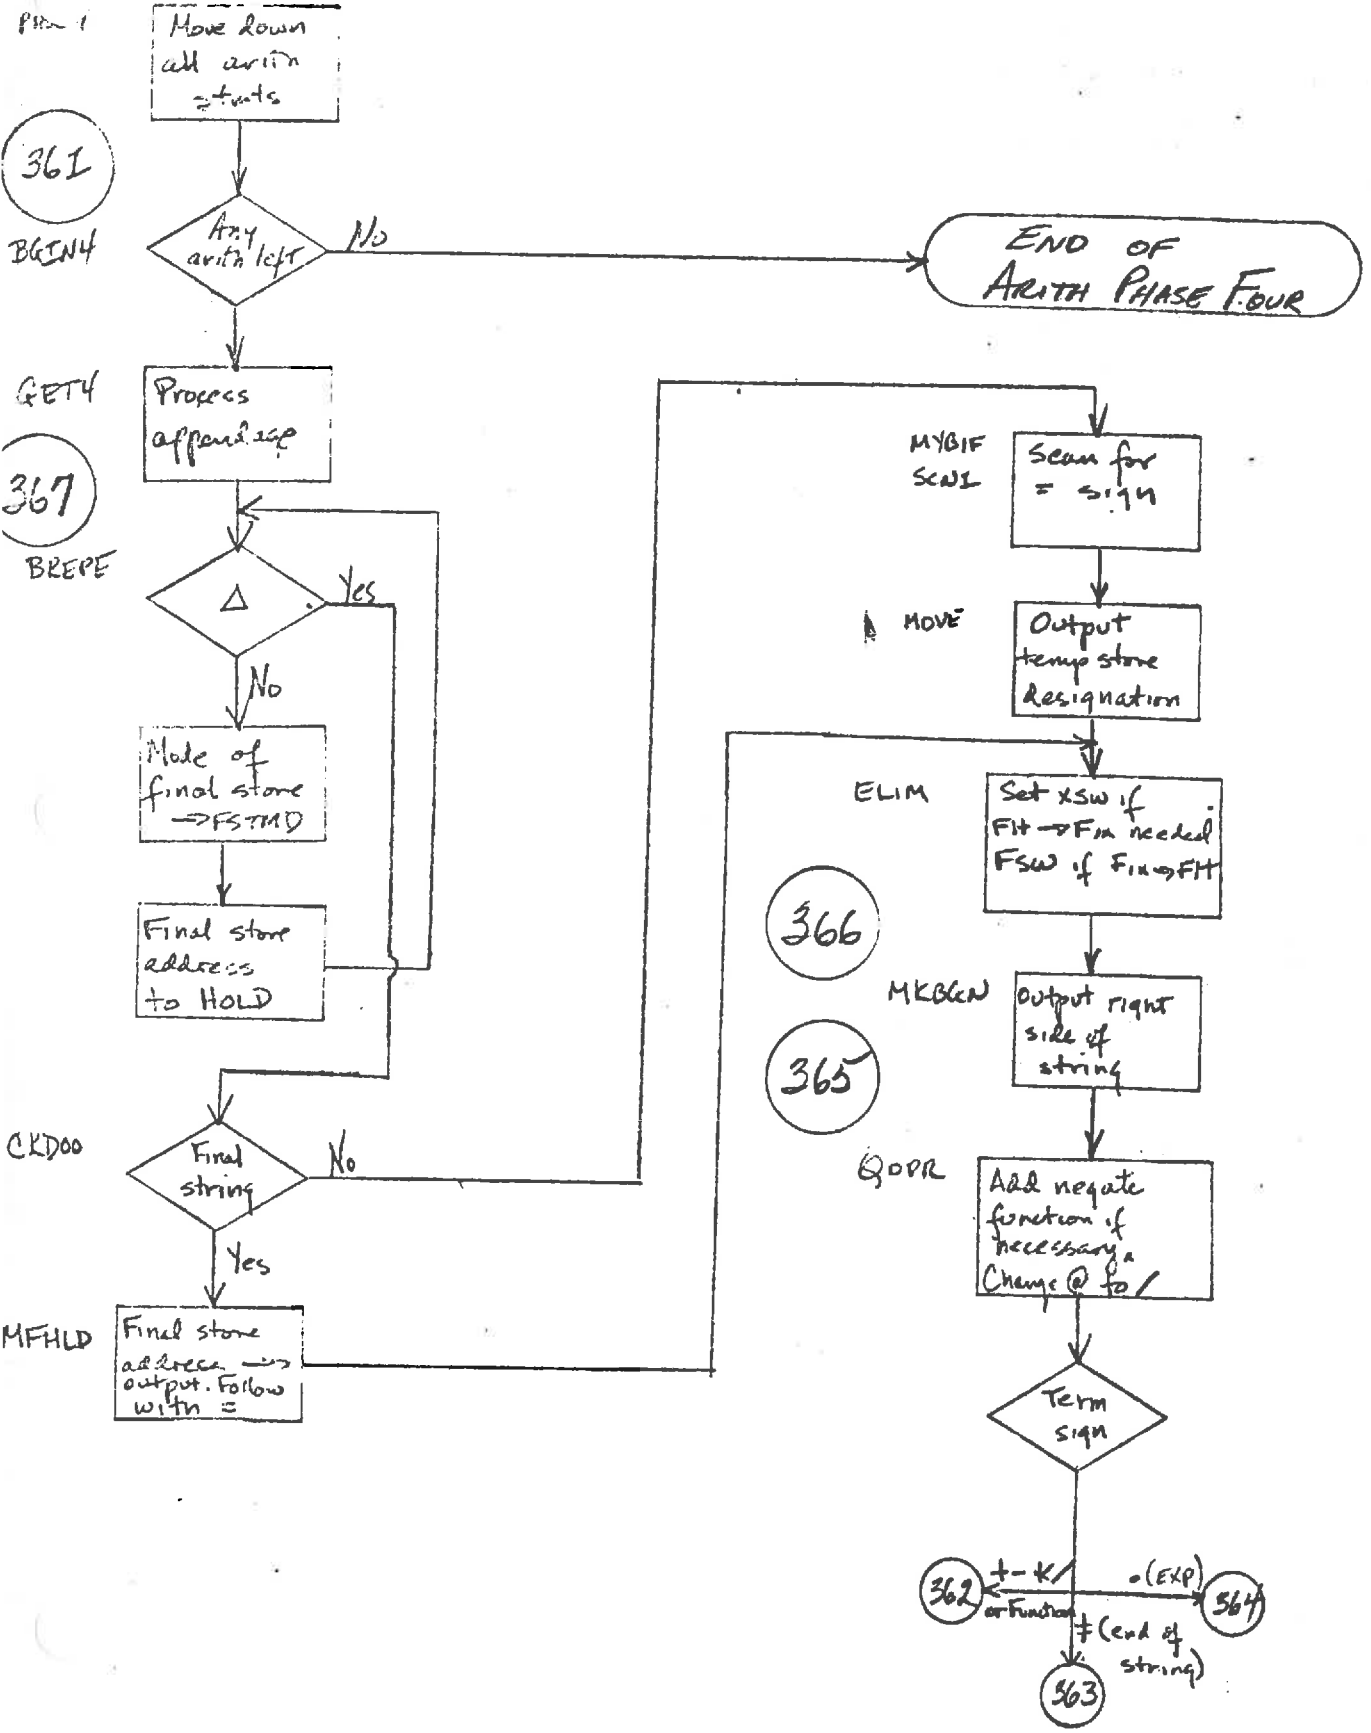 Move down
all arith
stmts
361
BGIN4
Any
arith left
No
END OF
ARITH PHASE FOUR
GET4
Process
appendage
367
BREPE
Δ
Yes
No
Mode of
final store
→FSTMD
Final store
address
to HOLD
CKD00
Final
string
No
Yes
MFHLD
Final store
address →
output. Follow
with =
MYBIF
SCN1
Scan for
= sign
MOVE
Output
temp store
designation
ELIM
Set XSW if
Flt → Fix needed
FSW if Fix→Flt
366
MKBGN
Output right
side of
string
365
QOPR
Add negate
function if
necessary.
Change @ to /
Term
sign
362
+ - * /
or Function
.(EXP)
364
‡ (end of
string)
363